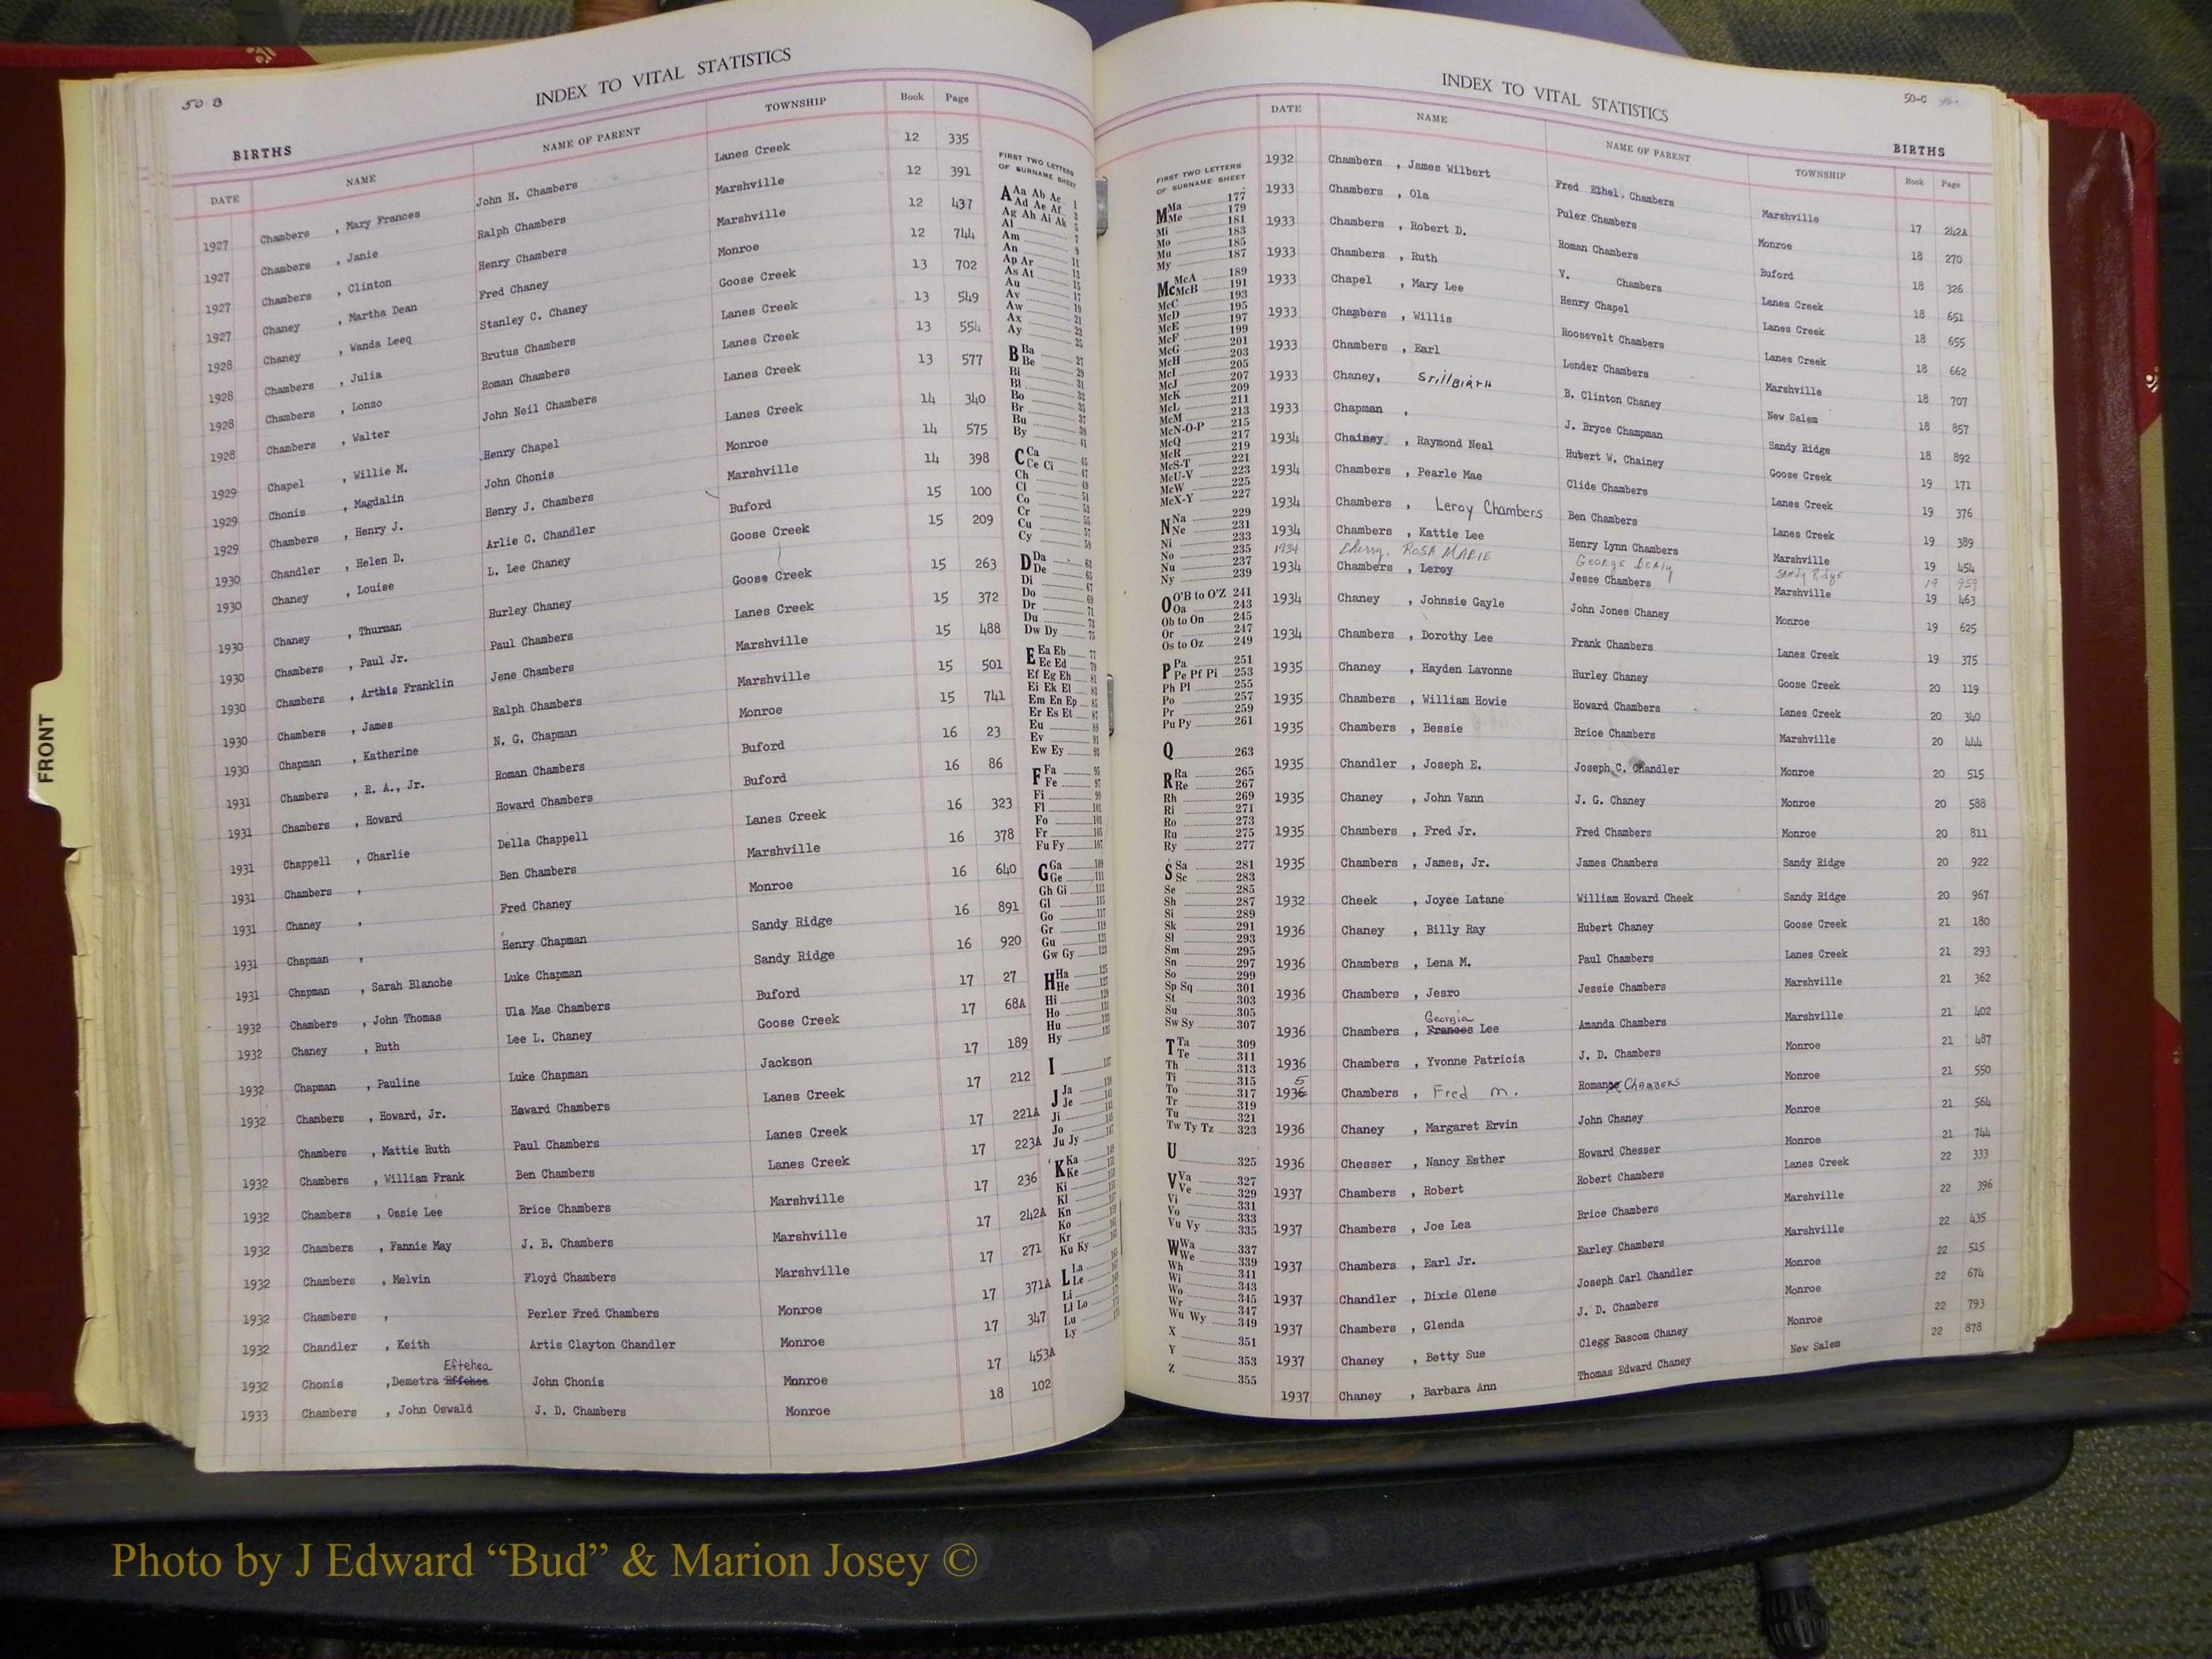 50 B
INDEX TO VITAL STATISTICS
BIRTHS
DATE NAME NAME OF PARENT TOWNSHIP Book Page
1927 Chambers , Mary Frances John H. Chambers Lanes Creek 12 335
1927 Chambers , Janie Ralph Chambers Marshville 12 391
1927 Chambers , Clinton Henry Chambers Marshville 12 437
1927 Chaney , Martha Dean Fred Chaney Monroe 12 744
1928 Chaney , Wanda Leeq Stanley C. Chaney Goose Creek 13 702
1928 Chambers , Julia Brutus Chambers Lanes Creek 13 549
1928 Chambers , Lonzo Roman Chambers Lanes Creek 13 554
1928 Chambers , Walter John Neil Chambers Lanes Creek 13 577
1929 Chapel , Willie M. Henry Chapel Lanes Creek 14 340
1929 Chonis , Magdalin John Chonis Monroe 14 575
1929 Chambers , Henry J. Henry J. Chambers Marshville 14 398
1930 Chandler , Helen D. Arlie C. Chandler Buford 15 100
1930 Chaney , Louise L. Lee Chaney Goose Creek 15 209
1930 Chaney , Thurman Hurley Chaney Goose Creek 15 263
1930 Chambers , Paul Jr. Paul Chambers Lanes Creek 15 372
1930 Chambers , Arthis Franklin Jene Chambers Marshville 15 488
1930 Chambers , James Ralph Chambers Marshville 15 501
1930 Chapman , Katherine N. G. Chapman Monroe 15 741
1931 Chambers , R. A., Jr. Roman Chambers Buford 16 23
1931 Chambers , Howard Howard Chambers Buford 16 86
1931 Chappell , Charlie Della Chappell Lanes Creek 16 323
1931 Chambers , Ben Chambers Marshville 16 378
1931 Chaney , Fred Chaney Monroe 16 640
1931 Chapman , Henry Chapman Sandy Ridge 16 891
1931 Chapman , Sarah Blanche Luke Chapman Sandy Ridge 16 920
1932 Chambers , John Thomas Ula Mae Chambers Buford 17 27
1932 Chaney , Ruth Lee L. Chaney Goose Creek 17 68A
1932 Chapman , Pauline Luke Chapman Jackson 17 189
1932 Chambers , Howard, Jr. Haward Chambers Lanes Creek 17 212
Chambers , Mattie Ruth Paul Chambers Lanes Creek 17 221A
1932 Chambers , William Frank Ben Chambers Lanes Creek 17 223A
1932 Chambers , Ossie Lee Brice Chambers Marshville 17 236
1932 Chambers , Fannie May J. B. Chambers Marshville 17 242A
1932 Chambers , Melvin Floyd Chambers Marshville 17 271
1932 Chambers , Perler Fred Chambers Monroe 17 371A
1932 Chandler , Keith Artis Clayton Chandler Monroe 17 347
Eftehea
1932 Chonis ,Demetra Effehea John Chonis Monroe 17 453A
1933 Chambers , John Oswald J. D. Chambers Monroe 18 102
FIRST TWO LETTERS
OF SURNAME SHEET
A Aa Ab Ac 1
Ad Ae Af 3
Ag Ah Ai Ak 5
Al 7
Am 9
An 11
Ap Ar 13
As At 15
Au 17
Av 19
Aw 21
Ax 23
Ay 25
B Ba 27
Be 29
Bi 31
Bl 33
Bo 35
Br 37
Bu 39
By 41
C Ca 45
Ce Ci 47
Ch 49
Cl 51
Co 53
Cr 55
Cu 57
Cy 59
D Da 63
De 65
Di 67
Do 69
Dr 71
Du 73
Dw Dy 75
E Ea Eb 77
Ec Ed 79
Ef Eg Eh 81
Ei Ek El 83
Em En Ep 85
Er Es Et 87
Eu 89
Ev 91
Ew Ey 93
F Fa 95
Fe 97
Fi 99
Fl 101
Fo 103
Fr 105
Fu Fy 107
G Ga 109
Ge 111
Gh Gi 113
Gl 115
Go 117
Gr 119
Gu 121
Gw Gy 123
H Ha 125
He
Hi
Ho
Hu
Hy
I
J Ja
Je
Ji
Jo
Ju Jy
K Ka
Ke
Ki
Kl
Kn
Ko
Kr
Ku Ky
L La
Le
Li
Ll Lo
Lu
Ly
FRONT
INDEX TO VITAL STATISTICS
50-C
BIRTHS
DATE NAME NAME OF PARENT TOWNSHIP Book Page
1932 Chambers , James Wilbert Fred Ethel. Chambers Marshville 17 242A
1933 Chambers , Ola Puler Chambers Monroe 18 270
1933 Chambers , Robert D. Roman Chambers Buford 18 326
1933 Chambers , Ruth V. Chambers Lanes Creek 18 651
1933 Chapel , Mary Lee Henry Chapel Lanes Creek 18 655
1933 Chambers , Willis Roosevelt Chambers Lanes Creek 18 662
1933 Chambers , Earl Lender Chambers Marshville 18 707
1933 Chaney, Stillbirth B. Clinton Chaney New Salem 18 857
1933 Chapman , J. Bryce Champman Sandy Ridge 18 892
1934 Chainey , Raymond Neal Hubert W. Chainey Goose Creek 19 171
1934 Chambers , Pearle Mae Clide Chambers Lanes Creek 19 376
1934 Chambers , Leroy Chambers Ben Chambers Lanes Creek 19 389
1934 Chambers , Kattie Lee Henry Lynn Chambers Marshville 19 454
1934 Cherry, ROSA MARIE GEORGE Sandy Ridge 19 959
1934 Chambers , Leroy Jesse Chambers Marshville 19 463
1934 Chaney , Johnsie Gayle John Jones Chaney Monroe 19 625
1934 Chambers , Dorothy Lee Frank Chambers Lanes Creek 19 375
1935 Chaney , Hayden Lavonne Hurley Chaney Goose Creek 20 119
1935 Chambers , William Howie Howard Chambers Lanes Creek 20 340
1935 Chambers , Bessie Brice Chambers Marshville 20 444
1935 Chandler , Joseph E. Joseph C. Chandler Monroe 20 515
1935 Chaney , John Vann J. G. Chaney Monroe 20 588
1935 Chambers , Fred Jr. Fred Chambers Monroe 20 811
1935 Chambers , James, Jr. James Chambers Sandy Ridge 20 922
1932 Cheek , Joyce Latane William Howard Cheek Sandy Ridge 20 967
1936 Chaney , Billy Ray Hubert Chaney Goose Creek 21 180
1936 Chambers , Lena M. Paul Chambers Lanes Creek 21 293
1936 Chambers , Jesro Jessie Chambers Marshville 21 362
Georgia
1936 Chambers , Frances Lee Amanda Chambers Marshville 21 402
1936 Chambers , Yvonne Patricia J. D. Chambers Monroe 21 487
5
1936 Chambers , Fred M. Romanx Chambers Monroe 21 550
1936 Chaney , Margaret Ervin John Chaney Monroe 21 564
1936 Chesser , Nancy Esther Howard Chesser Monroe 21 744
1937 Chambers , Robert Robert Chambers Lanes Creek 22 333
1937 Chambers , Joe Lea Brice Chambers Marshville 22 396
1937 Chambers , Earl Jr. Earley Chambers Marshville 22 435
1937 Chandler , Dixie Olene Joseph Carl Chandler Monroe 22 515
1937 Chambers , Glenda J. D. Chambers Monroe 22 674
1937 Chaney , Betty Sue Clegg Bascom Chaney Monroe 22 793
1937 Chaney , Barbara Ann Thomas Edward Chaney New Salem 22 878
FIRST TWO LETTERS
OF SURNAME SHEET
M Ma 177
Me 179
Mi 181
Mo 183
Mu 185
My 187
Mc McA 189
McB 191
McC 193
McD 195
McE 197
McF 199
McG 201
McH 203
McI 205
McJ 207
McK 209
McL 211
McM 213
McN-O-P 215
McQ 217
McR 219
McS-T 221
McU-V 223
McW 225
McX-Y 227
N Na 229
Ne 231
Ni 233
No 235
Nu 237
Ny 239
O O'B to O'Z 241
Oa 243
Ob to On 245
Or 247
Os to Oz 249
P Pa 251
Pe Pf Pi 253
Ph Pl 255
Po 257
Pr 259
Pu Py 261
Q 263
R Ra 265
Re 267
Rh 269
Ri 271
Ro 273
Ru 275
Ry 277
S Sa 281
Sc 283
Se 285
Sh 287
Si 289
Sk 291
Sl 293
Sm 295
Sn 297
So 299
Sp Sq 301
St 303
Su 305
Sw Sy 307
T Ta 309
Te 311
Th 313
Ti 315
To 317
Tr 319
Tu 321
Tw Ty Tz 323
U 325
V Va 327
Ve 329
Vi 331
Vo 333
Vu Vy 335
W Wa 337
We 339
Wh 341
Wi 343
Wo 345
Wr 347
Wu Wy 349
X 351
Y 353
Z 355
Photo by J Edward “Bud” & Marion Josey ©